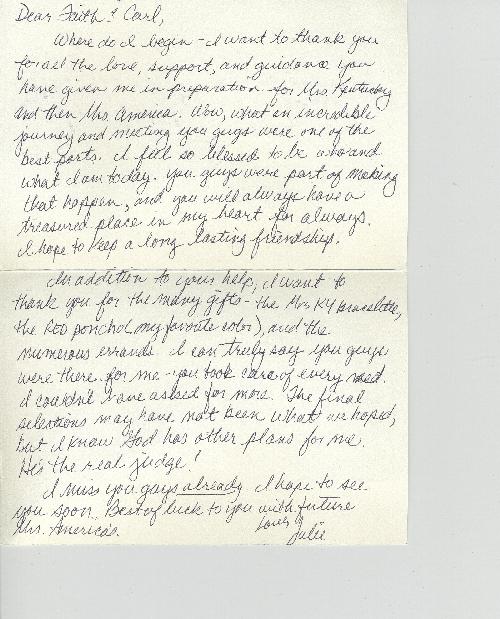 Dear Faith & Carl,
Where do I begin - I want to thank you
for all the love, support, and guidance you
have given me in preparation for Mrs. Kentucky
and then Mrs. America. Wow, what an incredible
journey and meeting you guys were one of the
best parts. I feel so blessed to be who and
what I am today. You guys were part of making
that happen, and you will always have a
treasured place in my heart for always.
I hope to keep a long lasting friendship.
In addition to your help, I want to
thank you for the many gifts - the Mrs. KY bracelette,
the red poncho (my favorite color), and the
numerous errands. I can truly say you guys
were there for me - you took care of every need.
I couldn't have asked for more. The final
selections may have not been what we hoped,
but I know God has other plans for me.
He's the real judge!
I miss you guys already. I hope to see
you soon. Best of luck to you with future
Mrs. America's.
Love,
Julie